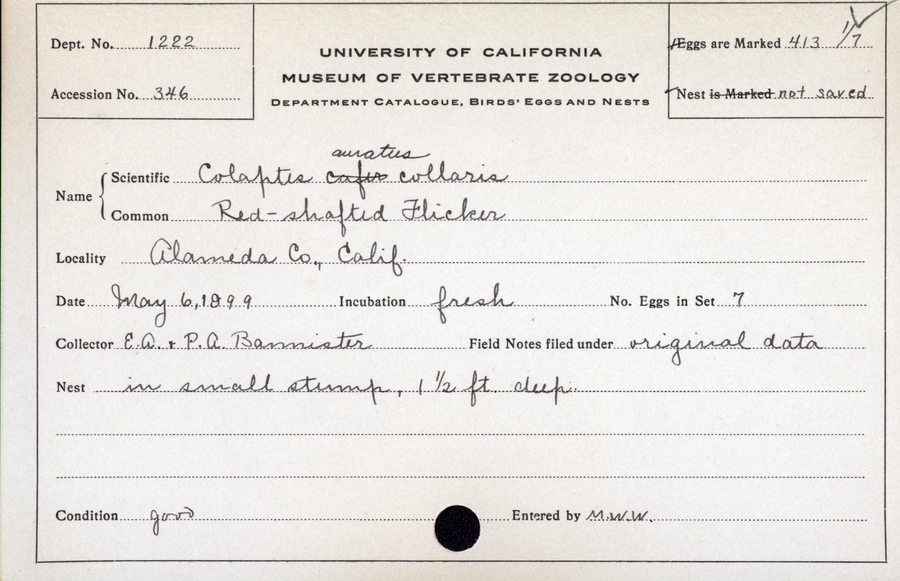 Dept. No. 1222
Accession No. 346
UNIVERSITY OF CALIFORNIA
MUSEUM OF VERTEBRATE ZOOLOGY
DEPARTMENT CATALOGUE, BIRDS' EGGS AND NESTS
Eggs are Marked 413 1/7
Nest is Marked not saved
auratus
Name Scientific Colaptes cafer collaris
Common Red-shafted Flicker
Locality Alameda Co., Calif.
Date May 6, 1899 Incubation fresh No. Eggs in Set 7
Collector E.A. + P.A. Bannister Field Notes filed under original data
Nest in small stump, 1 1/2 ft. deep.
Condition good Entered by M.W.W.